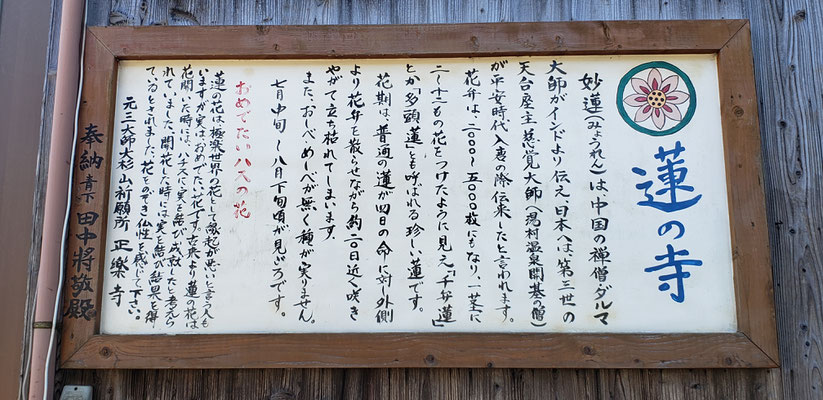 蓮の寺
妙蓮(みょうれん)は、中国の禅僧ダルマ
大師がインドより伝え、日本へは第三世の
天台座主慈覚大師(湯村温泉開基の僧)
が平安時代入唐の際伝来したと言われます。
花弁は、二〇〇〇～五〇〇〇枚にもなり、一茎に
二～十二もの花をつけたように見え、「千弁蓮」
とか「多頭蓮」とも呼ばれる珍しい蓮です。
花期は、普通の蓮が四日の命に対し外側
より花弁を散らせながら約二〇日近く咲き
やがて立ち枯れてしまいます。
また、おしべ・めしべが無く種が実りません。
七月中旬～八月下旬頃が見ごろです。
おめでたいハスの花
蓮の花は、極楽世界の花として縁起が悪いと言う人も
いますが実はおめでたい花です。古来より蓮の花は
花開いた時には、ハチスに実を結び成就したと考えら
れていました。開花した時には実を結び結果を得
てゐるとされました。花をのぞき仏性を感じて下さい。
元三大師大杉山祈願所 正樂寺
奉納 田中将敬殿